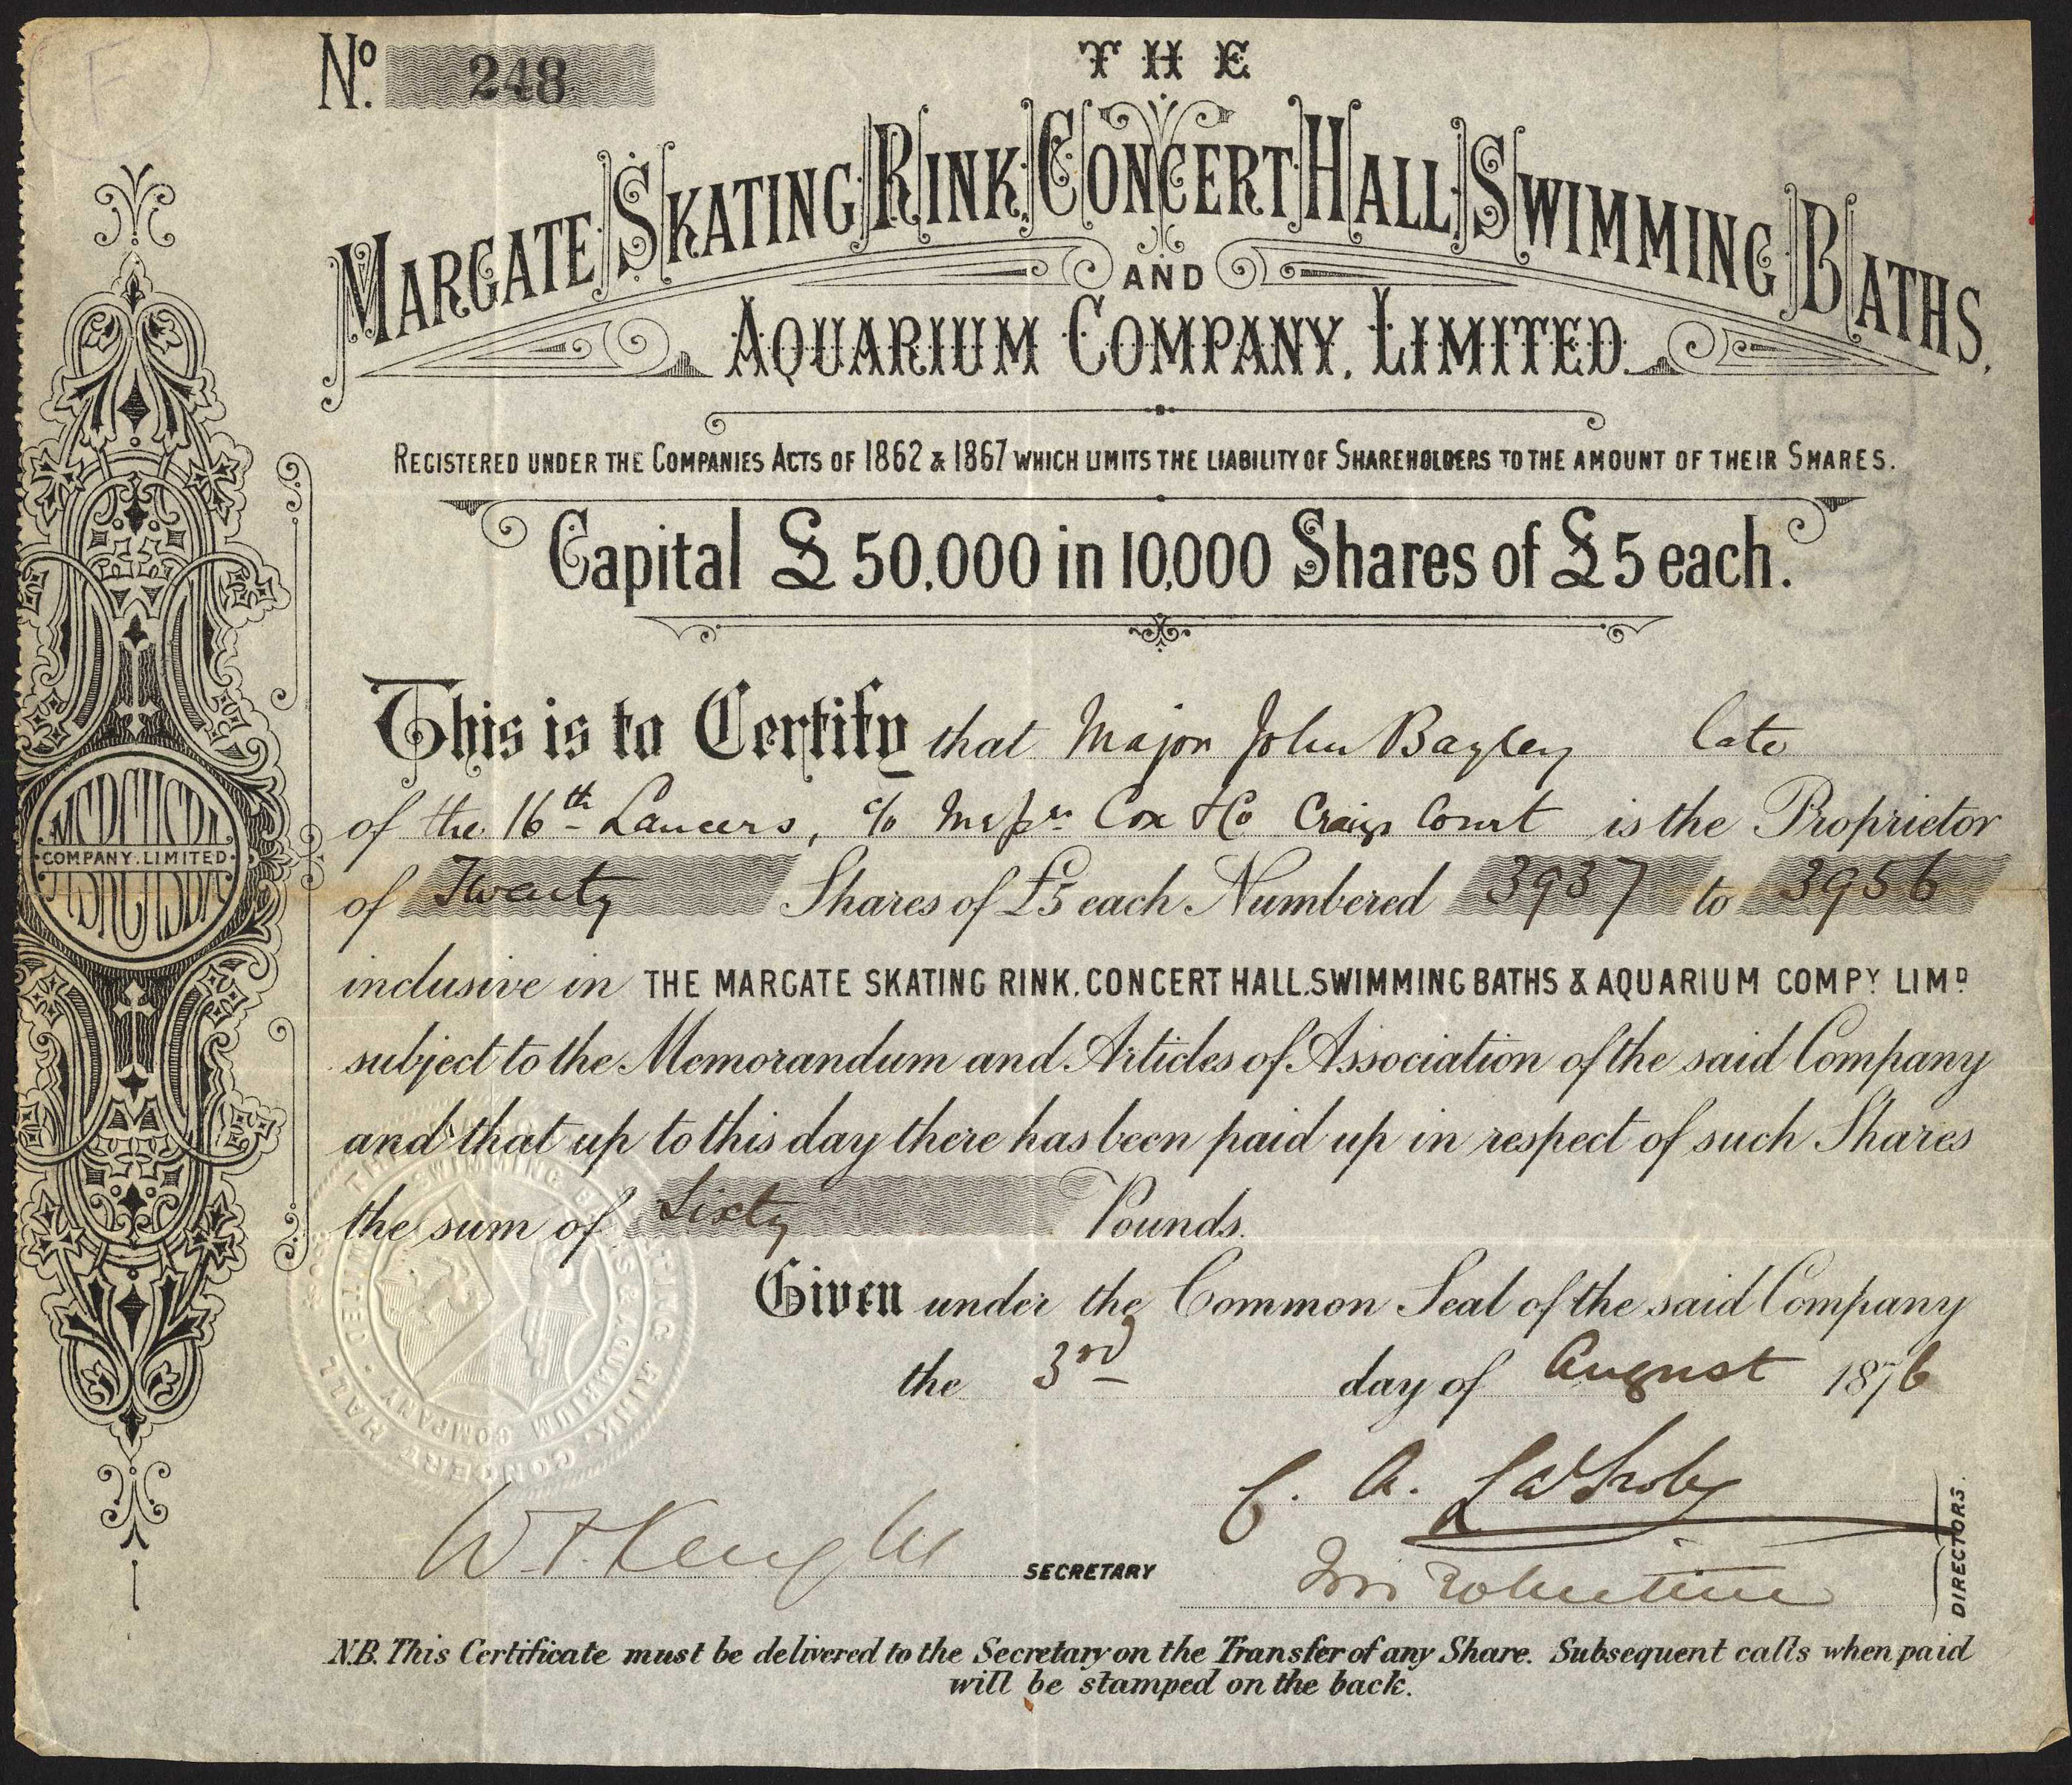 No. 248
THE
MARGATE SKATING RINK, CONCERT HALL, SWIMMING BATHS,
AND
AQUARIUM COMPANY, LIMITED.
REGISTERED UNDER THE COMPANIES ACTS OF 1862 & 1867 WHICH LIMITS THE LIABILITY OF SHAREHOLDERS TO THE AMOUNT OF THEIR SHARES.
Capital £50,000 in 10,000 Shares of £5 each.
This is to Certify that Major John Bayley late
of the 16th Lancers, c/o Messrs Cox & Co Craigs Court is the Proprietor
of Twenty Shares of £5 each Numbered 3937 to 3956
COMPANY. LIMITED
inclusive in THE MARGATE SKATING RINK, CONCERT HALL, SWIMMING BATHS & AQUARIUM COMPY. LIMD.
subject to the Memorandum and Articles of Association of the said Company
and that up to this day there has been paid up in respect of such Shares
the sum of Sixty Pounds.
Given under the Common Seal of the said Company
the 3rd day of August 1876
C. A.
SECRETARY
DIRECTORS.
N.B. This Certificate must be delivered to the Secretary on the Transfer of any Share. Subsequent calls when paid
will be stamped on the back.